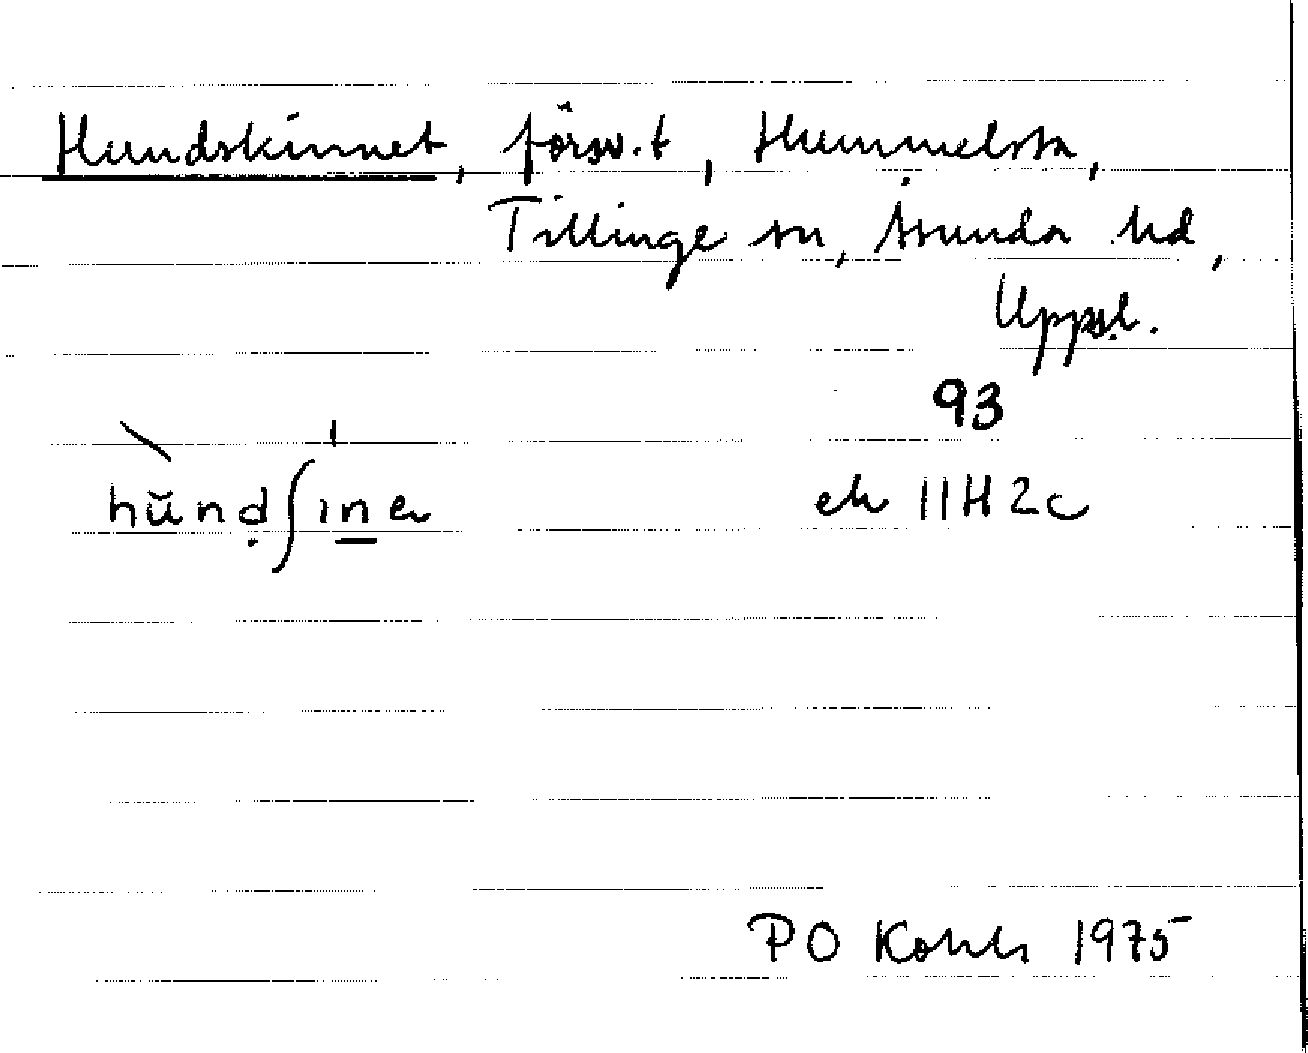 Hundskinnet, försv.t, Hummelsta,
Tillinge sn, Åsunda hd,
Uppl.
93
hŭnḍʃıne
ek 11H2c
1975